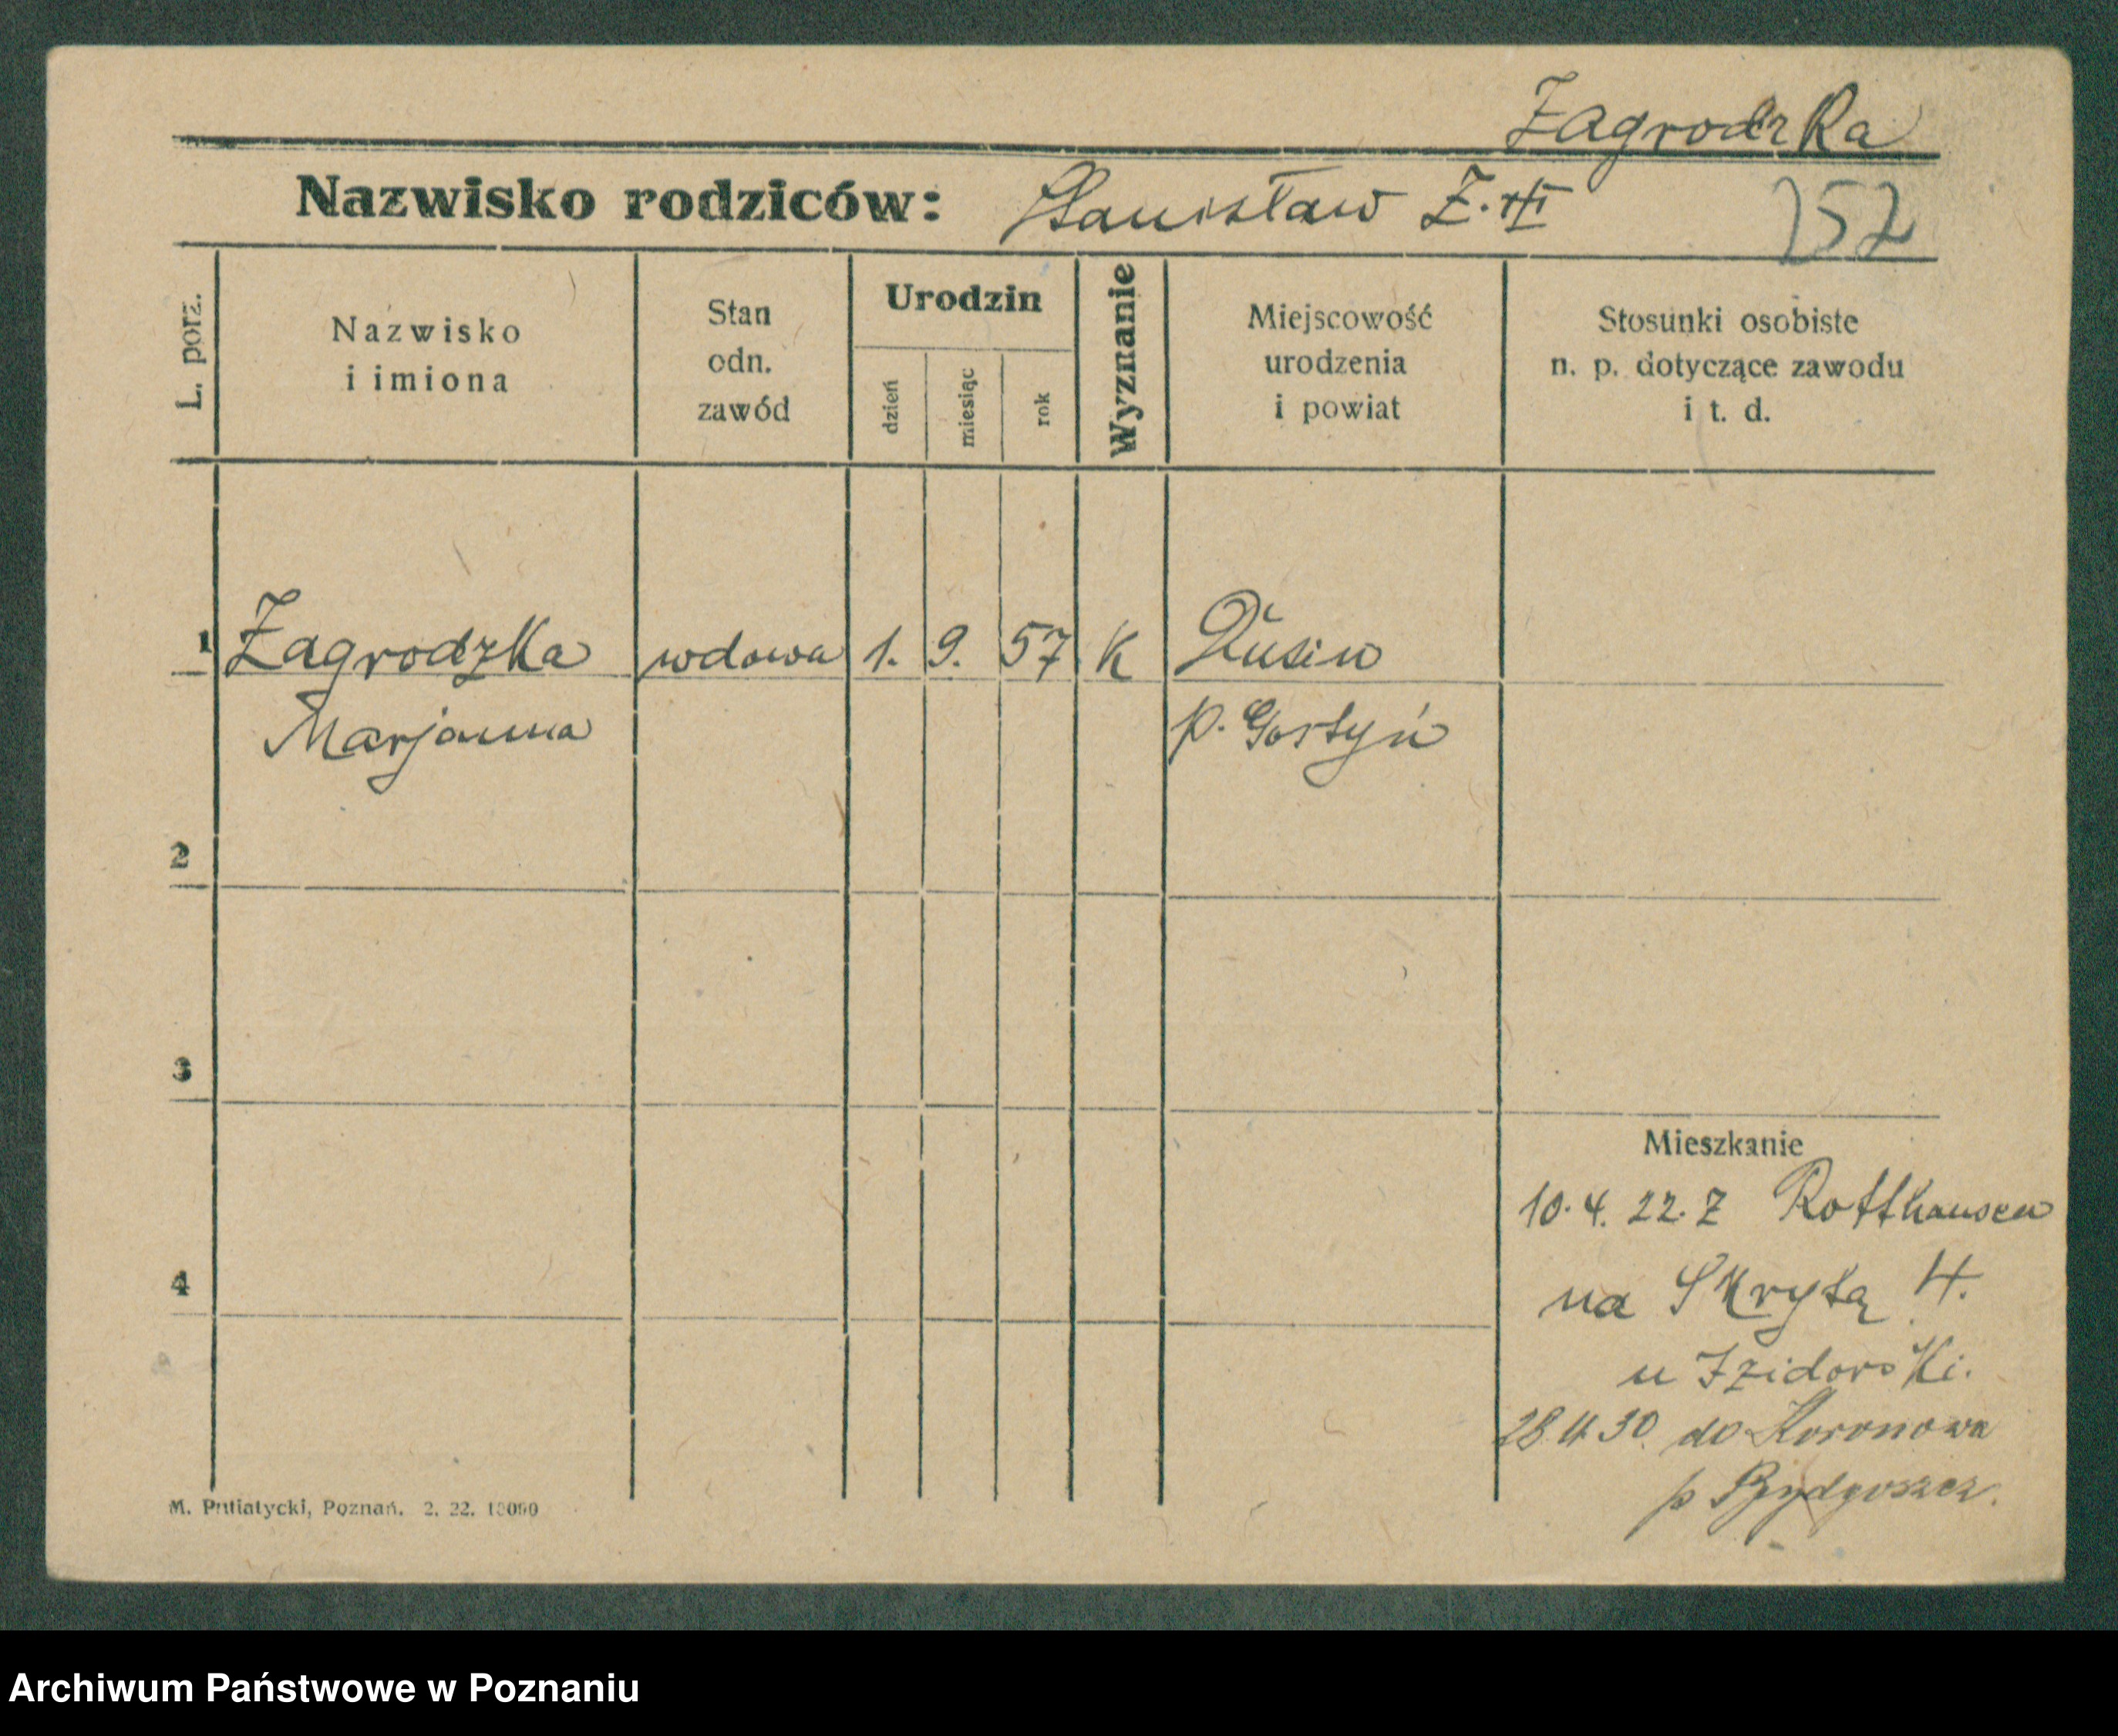 Zagrodzka
Nazwisko rodziców: Stanisław Z.
252
L. porz.
Nazwisko
i imiona
Stan
odn.
zawód
Urodzin
dzień
miesiąc
rok
Wyznanie
Miejscowość
urodzenia
i powiat
Stosunki osobiste
n. p. dotyczące zawodu
i t. d.
1 Zagrodzka wdowa 1. 9. 57 K Dusin
Marjanna p. Gostyń
2
3
Mieszkanie
10. 4. 22. z Rotthausen
4
na Skrytą 4.
u Izidorski.
28 4 30. do Koronowa
p Bydgoszcz.
M. Putiatycki, Poznań. 2. 22. 15000
Archiwum Państwowe w Poznaniu